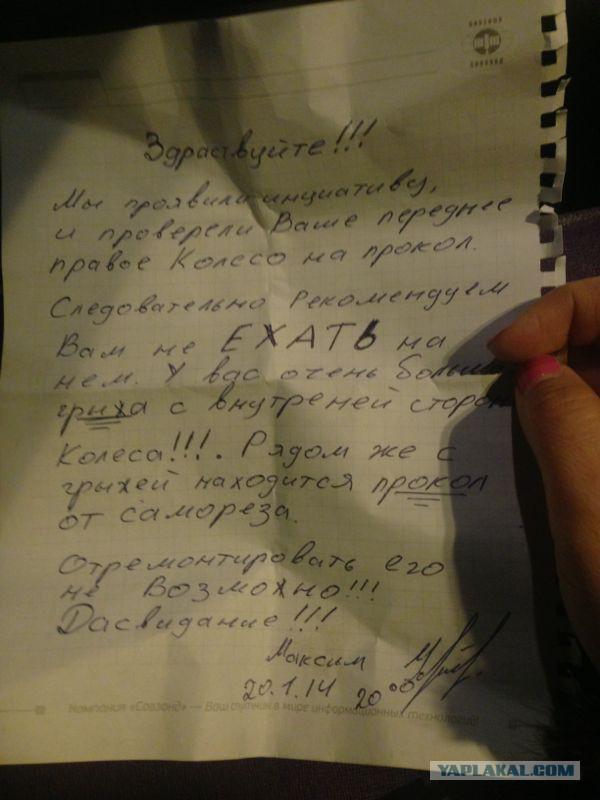 Здраствуйте!!!
Мы проявили инциативу,
и проверели Ваше переднее
правое Колесо на прокол.
Следовательно Рекомендуем
Вам не ЕХАТЬ на
нем. У вас очень больш
грыжа с внутреней сторон
Колеса!!!. Рядом же с
грыжей находится прокол
от самореза.
Отремонтировать его
не возможно!!!
Дасвидание!!!
Максим
20.1.14 20 00
Компания «Совзонд» — Ваш спутник в мире информационных технологий!
YAPLAKAL.COM